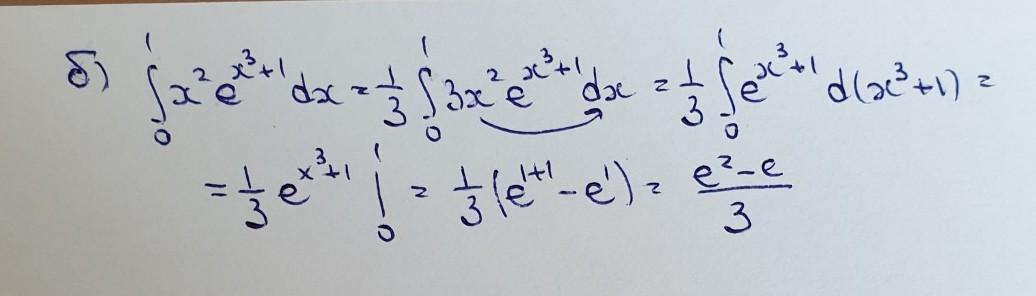 б) ∫₀¹ x² e^(x³+1) dx = 1/3 ∫₀¹ 3x² e^(x³+1) dx = 1/3 ∫₀¹ e^(x³+1) d(x³+1) =
= 1/3 e^(x³+1) |₀¹ = 1/3 (e^(1+1) - e¹) = (e² - e)/3